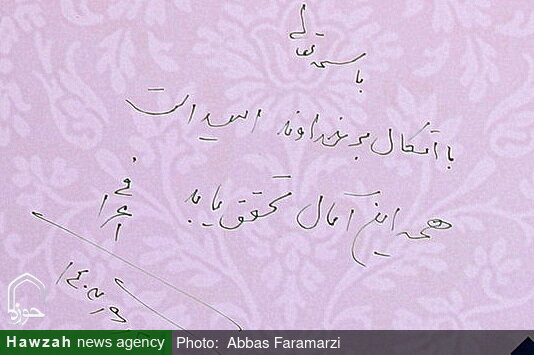 باسمه تعالی
با اتکال بر خداوند امید است
همه این آمال تحقق یابد
اعرافی
حوزه
Hawzah news agency Photo: Abbas Faramarzi